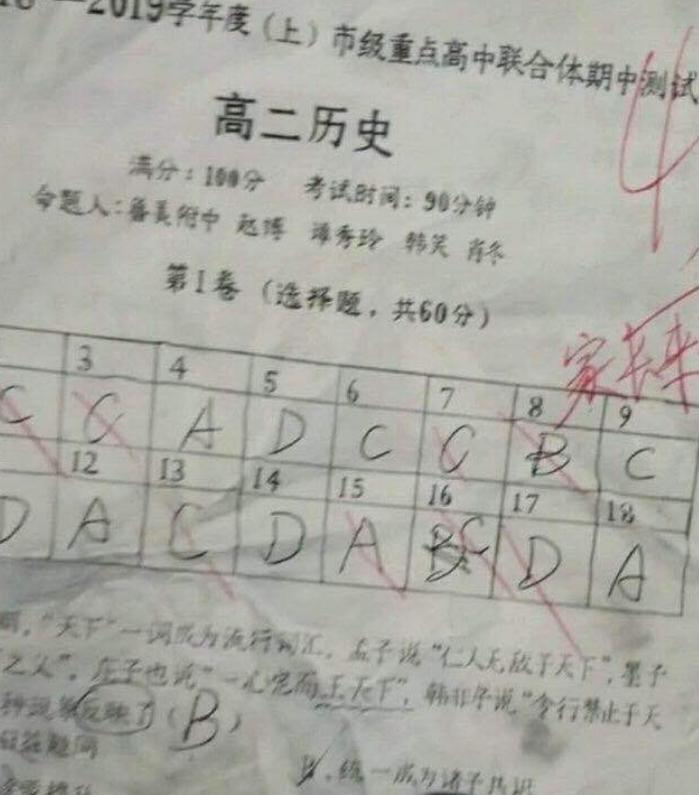 —2019学年度（上）市级重点高中联合体期中测试
高二历史
满分：100分 考试时间：90分钟
命题人：
第I卷（选择题，共60分）
家长来
3 4 5 6 7 8 9
C C A D C C B C
12 13 14 15 16 17 18
D A C D A C D A
"天下"一词成为流行词汇，孟子说"仁人无敌于天下"，墨子
之父"，庄子也说"一心定而王天下"，韩非子说"令行禁止于天
种现象反映了（B）